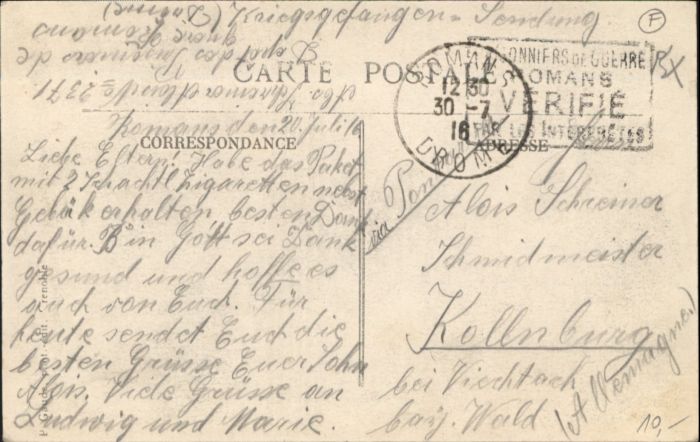 Kriegsgefangen = Sendung
(F)
Abs. Schreiner Alois No 22371
Dépot des Internés de
Guerre Romans
(Drôme)
CARTE POSTALE
ROMANS
12 30
30 -7
16
DROME
PRISONNIERS DE GUERRE
ROMANS
VÉRIFIÉ
PAR LES INTERPRÈTES
CORRESPONDANCE
ADRESSE
Romans den 20. Juli 16
Liebe Eltern! Habe das Paket
mit 2 Schachtl Zigaretten nebst
Gebäk erhalten besten Dank
dafür. Bin Gott sei Dank
gesund und hoffe es
auch von Euch. Für
heute sendet Euch die
besten Grüsse Euer Sohn
Alois. Viele Grüsse an
Ludwig und Marie.
via
Alois Schreiner
Schmidmeister
Kollnburg
bei Viechtach
bay. Wald
(Allemagne)
10,-